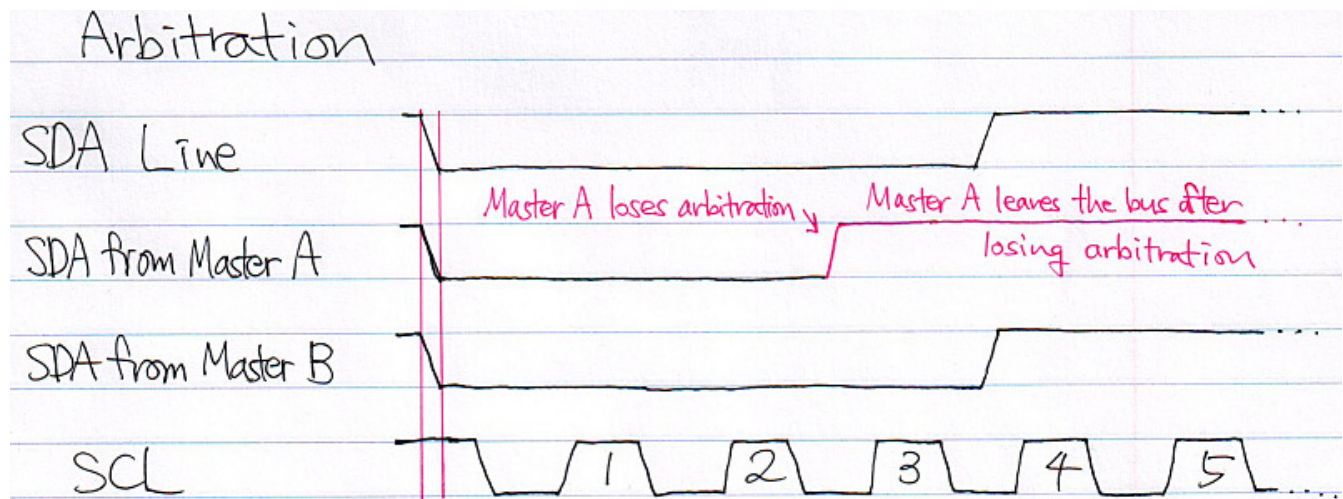 Arbitration
SDA Line
Master A loses arbitration
Master A leaves the bus after
losing arbitration
SDA from Master A
SDA from Master B
SCL
1 2 3 4 5